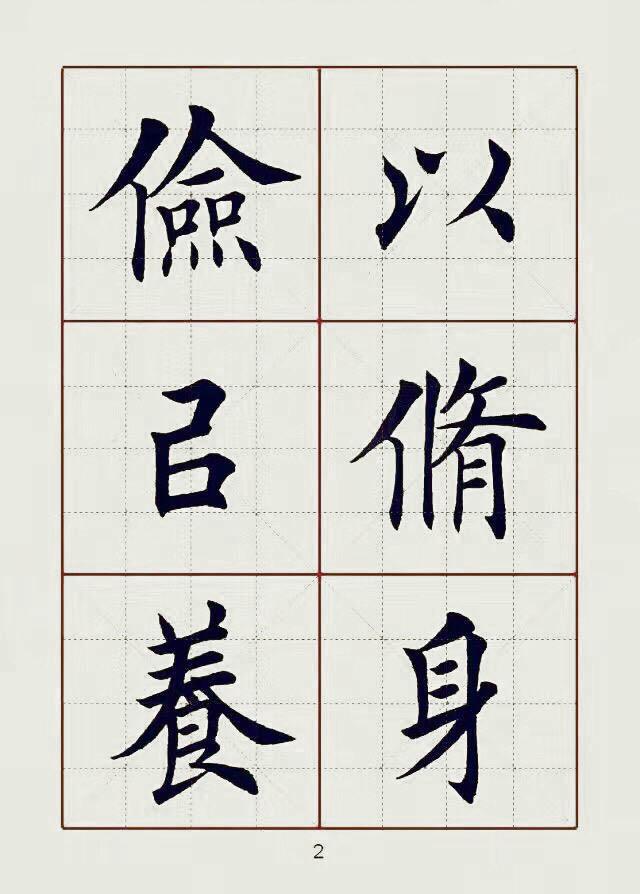 以脩身
儉㠯養
2